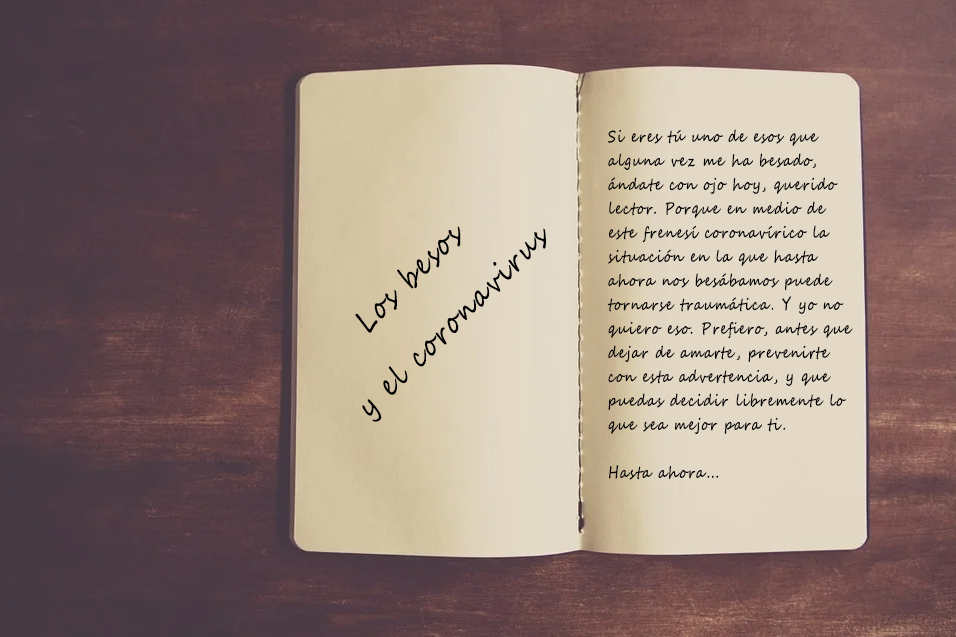 Los besos
y el coronavirus
Si eres tú uno de esos que
alguna vez me ha besado,
ándate con ojo hoy, querido
lector. Porque en medio de
este frenesí coronavírico la
situación en la que hasta
ahora nos besábamos puede
tornarse traumática. Y yo no
quiero eso. Prefiero, antes que
dejar de amarte, prevenirte
con esta advertencia, y que
puedas decidir libremente lo
que sea mejor para ti.
Hasta ahora...